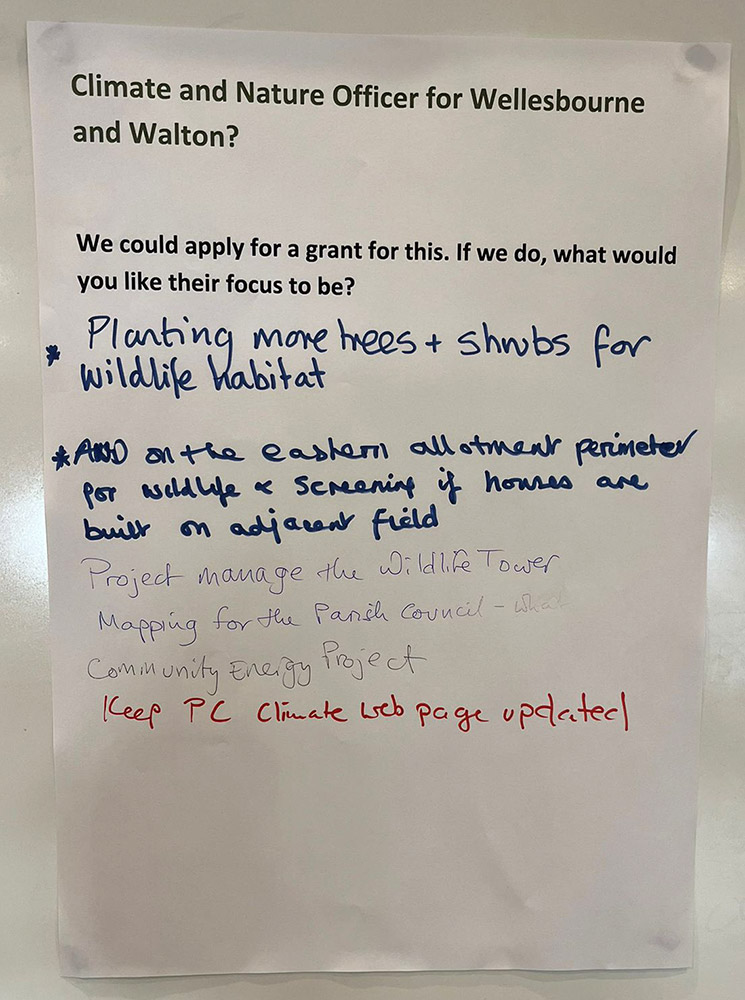 Climate and Nature Officer for Wellesbourne
and Walton?
We could apply for a grant for this. If we do, what would
you like their focus to be?
* Planting more trees + shrubs for
wildlife habitat
* AND on the eastern allotment perimeter
for wildlife & screening if houses are
built on adjacent field
Project manage the Wildlife Tower
Mapping for the Parish Council - what
Community Energy Project
Keep PC Climate web page updated